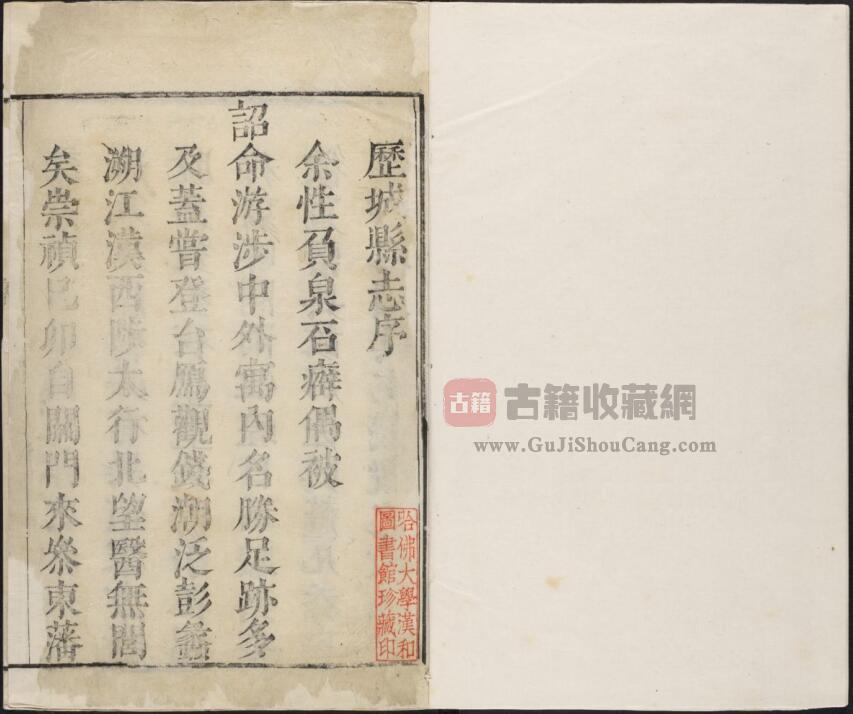 歷城縣志序
余性負泉石癖偶被
詔命游涉中外寓內名勝足跡多
及蓋嘗登台鴈觀錢潮泛彭蠡
溯江漢西陟太行北望醫無閭
矣崇禎已卯自關門來叅東藩
哈佛大學漢和
圖書館珍藏印
古籍
古籍收藏網
www.GuJiShouCang.com